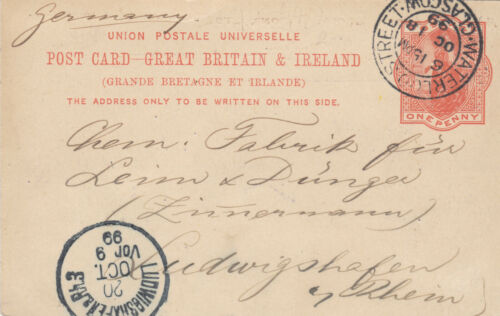 Germany
UNION POSTALE UNIVERSELLE
POST CARD—GREAT BRITAIN & IRELAND
(GRANDE BRETAGNE ET IRLANDE)
THE ADDRESS ONLY TO BE WRITTEN ON THIS SIDE.
ONE PENNY
WATERLOO STREET·GLASGOW·
OC 18
99
Chem: Fabrik für
Leim & Dünger
(Zimmermann)
Ludwigshafen
a/Rhein
LUDWIGSHAFEN a. Rh. 3
20
OCT.
Vor 9
99